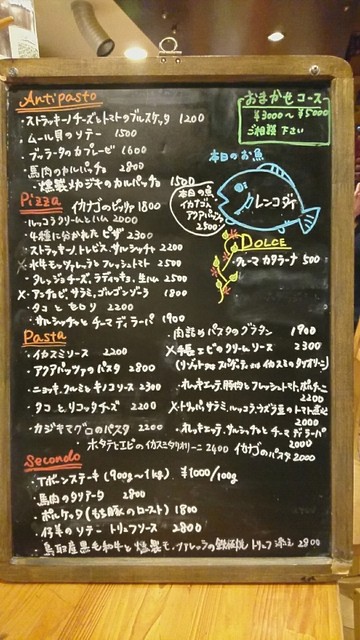 Antipasto
・ストラッキーノチーズとトマトのブルスケッタ 1200
・ムール貝のソテー 1500
・ブッラータのカプレーゼ 1600
・馬肉のカルパッチョ 2800
・燻製カジキのカルパッチョ 1500
おまかせコース
¥3000〜¥5000
ご相談下さい
本日のお魚
レンコダイ
本日の魚
イカナゴ入
アクアパッツァ
2500
DOLCE
クレーマカタラーナ 500
Pizza
イカナゴのピッツァ 1800
・ルッコラクリームとハム 2000
・4種に分かれたピザ 2300
・ストラッキーノ、トレビス、サルシッチャ 2200
×・水牛モッツァレッラとフレッシュトマト 2500
・タレッジョチーズ、ラディッキョ、生ハム 2500
×・アンチョビ、サラミ、ゴルゴンゾーラ 1800
・タコともとり 2200
・サルシッチャとチーマディラーパ 1900
Pasta
・イカスミソース 2200
・アクアパッツァのパスタ 2800
・ニョッキ、クルミとキノコソース 2300
・タコとリコッタチーズ 2200
・カジキマグロのパスタ 2200
・ホタテとエビのイカスミタリオリーニ 2400
・肉詰めパスタのグラタン 1900
×・手長エビのクリームソース 2300
(リゾット or スパゲッティ or イカスミのタリオリーニ)
・オレキエッテ、豚肉とフレッシュトマト、ポルチーニ
2200
×・トリッパ、サラミ、ルッコラ、ウズラ豆のトマト煮込
2000
・オレキエッテ、サルシッチャとチーマディラーパ
2000
イカナゴのパスタ 2000
Secondo
・Tボーンステーキ (900g〜1kg) ¥1000/100g
・馬肉のタリアータ 2800
・ポルケッタ(もち豚のロースト) 1800
・仔羊のソテー トリュフソース 2800
・鳥取産黒毛和牛と燻製モッツァレッラの鉄板焼 トリュフ添え 2800